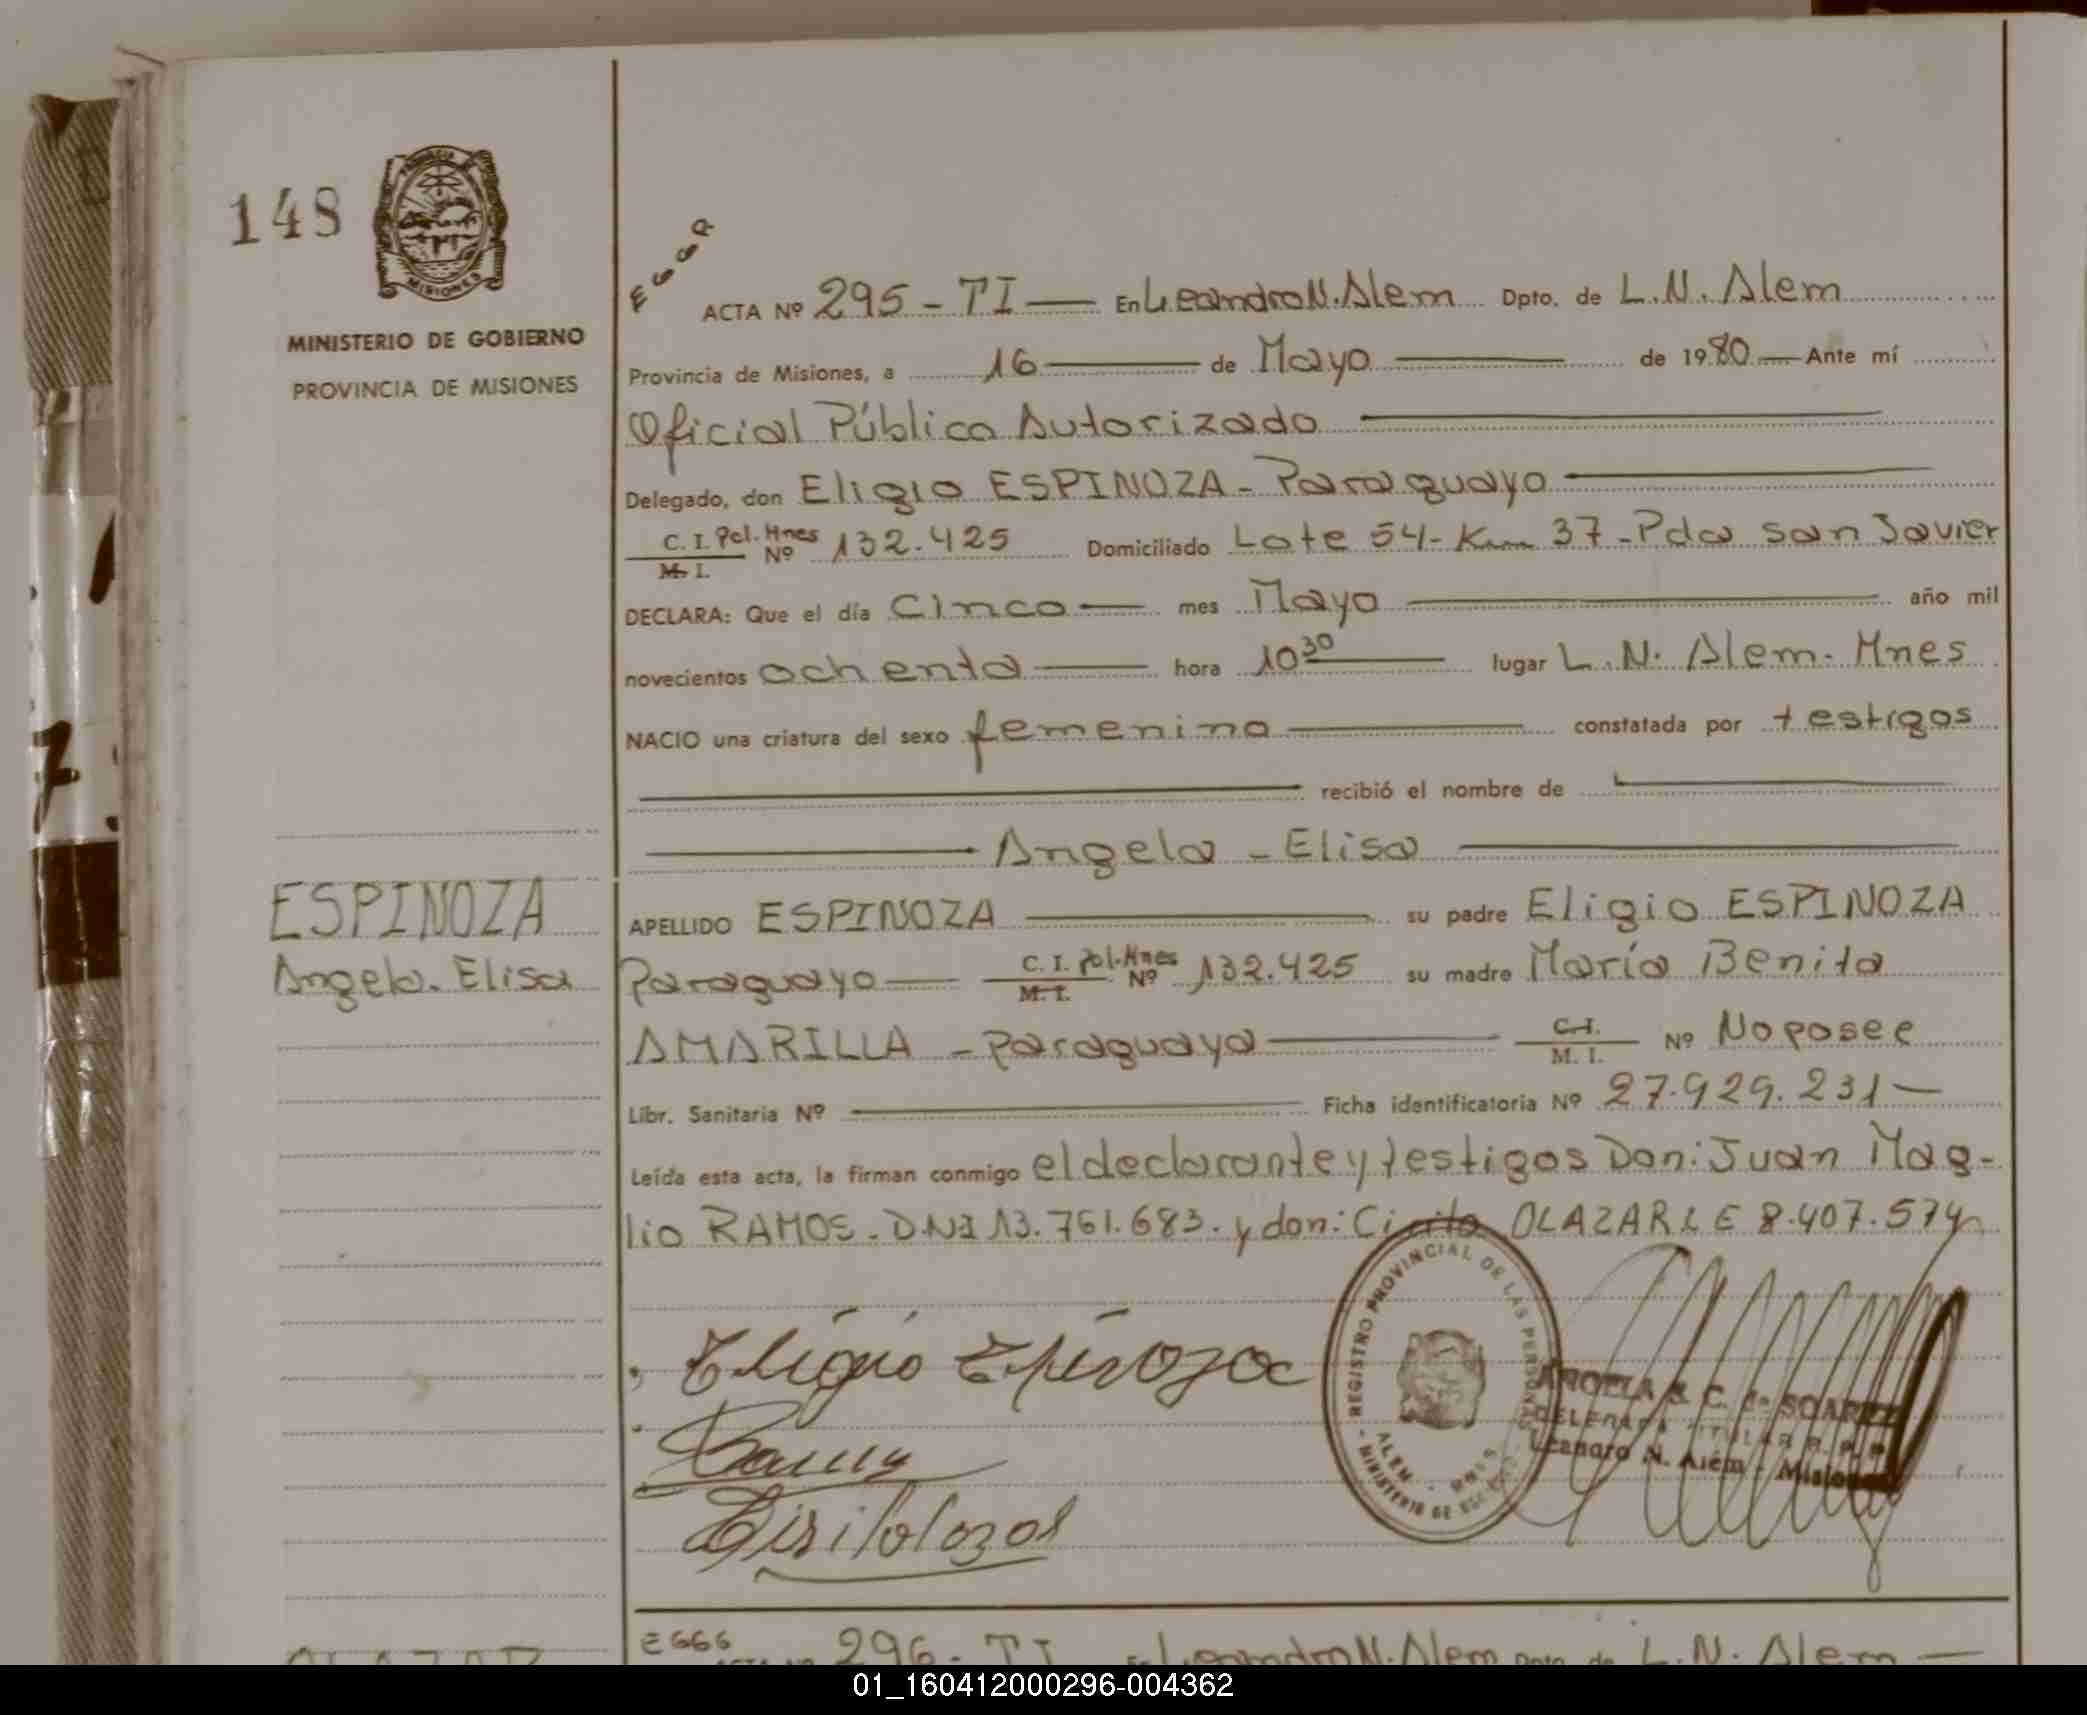 148
PROVINCIA DE
MISIONES
MINISTERIO DE GOBIERNO
PROVINCIA DE MISIONES
E G G R
ACTA Nº 295 - TI — En Leandro N. Alem Dpto. de L. N. Alem
Provincia de Misiones, a 16 — de Mayo — de 1980 — Ante mí
Oficial Público Autorizado
Delegado, don Eligio ESPINOZA - Paraguayo
C. I. Pol. Mnes
M. I. Nº 132.425 Domiciliado Lote 54 - Km 37 - Pda San Javier
DECLARA: Que el día Cinco — mes Mayo — año mil
novecientos ochenta — hora 10 30 — lugar L. N. Alem - Mnes
NACIO una criatura del sexo femenino — constatada por testigos
— recibió el nombre de —
— Angela - Elisa —
ESPINOZA
Angela - Elisa
APELLIDO ESPINOZA — su padre Eligio ESPINOZA
Paraguayo — C. I. Pol. Mnes
M. I. Nº 132.425 su madre María Benita
AMARILLA - Paraguaya — C. I.
M. I. Nº No posee
Libr. Sanitaria Nº — Ficha identificatoria Nº 27.929.231 —
Leída esta acta, la firman conmigo el declarante y testigos Don: Juan Mag-
lio RAMOS - DNI 13.761.683. y don: Cirilo OLAZAR LE 8.407.574
Eligio Espinoza
Cirilo Olazar
- REGISTRO PROVINCIAL DE LAS PERSONAS -
ALEM - MNES
MINISTERIO DE
ANGELA S. C. de SOAREZ
DELEGADA TITULAR R. P. P.
Leandro N. Alem - Misiones
E 666
296 - TI En Leandro N. Alem Dpto. de L. N. Alem —
OLAZAR
01_160412000296-004362